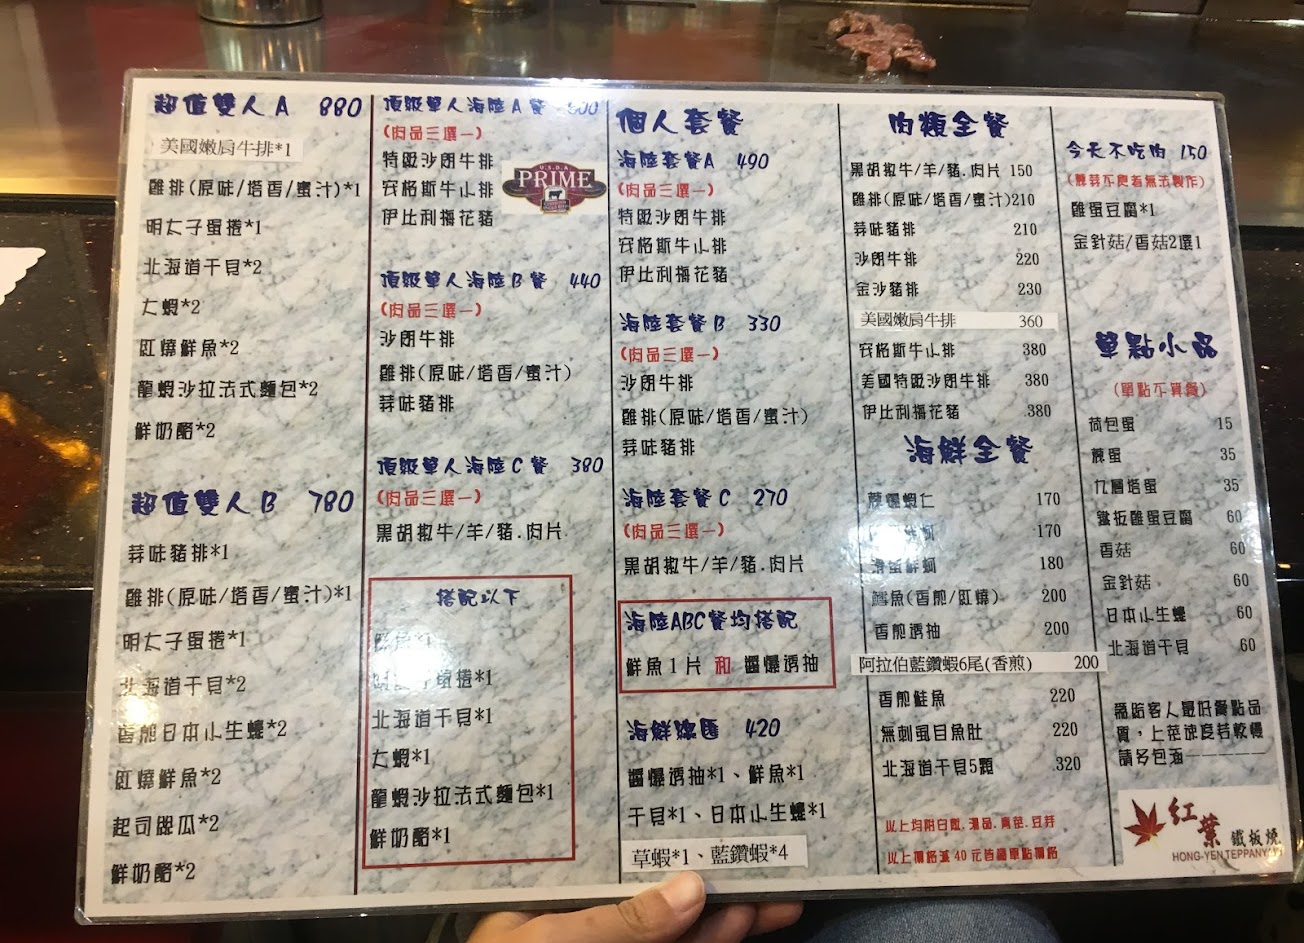 超值雙人A 880
美國嫩肩牛排*1
雞排(原味/塔香/蜜汁)*1
明太子蛋捲*1
北海道干貝*2
大蝦*2
紅燒鮮魚*2
龍蝦沙拉法式麵包*2
鮮奶酪*2
超值雙人B 780
蒜味豬排*1
雞排(原味/塔香/蜜汁)*1
明太子蛋捲*1
北海道干貝*2
香煎日本小生蠔*2
紅燒鮮魚*2
起司絲瓜*2
鮮奶酪*2
頂級單人海陸A餐 600
(肉品三選一)
特級沙朗牛排
安格斯牛小排
伊比利梅花豬
U.S.D.A
PRIME
頂級單人海陸B餐 440
(肉品三選一)
沙朗牛排
雞排(原味/塔香/蜜汁)
蒜味豬排
頂級單人海陸C餐 380
(肉品三選一)
黑胡椒牛/羊/豬.肉片
搭配以下
鮮魚*1
明太子蛋捲*1
北海道干貝*1
大蝦*1
龍蝦沙拉法式麵包*1
鮮奶酪*1
個人套餐
海陸套餐A 490
(肉品三選一)
特級沙朗牛排
安格斯牛小排
伊比利梅花豬
海陸套餐B 330
(肉品三選一)
沙朗牛排
雞排(原味/塔香/蜜汁)
蒜味豬排
海陸套餐C 270
(肉品三選一)
黑胡椒牛/羊/豬.肉片
海陸ABC餐均搭配
鮮魚1片 和 醬爆透抽
海鮮總匯 420
醬爆透抽*1、鮮魚*1
干貝*1、日本小生蠔*1
草蝦*1、藍鑽蝦*4
肉類全餐
黑胡椒牛/羊/豬.肉片 150
雞排(原味/塔香/蜜汁) 210
蒜味豬排 210
沙朗牛排 220
金沙豬排 230
美國嫩肩牛排 360
安格斯牛小排 380
美國特級沙朗牛排 380
伊比利梅花豬 380
海鮮全餐
蔥爆蝦仁 170
170
滑蛋鮮蚵 180
鱈魚(香煎/紅燒) 200
香煎透抽 200
阿拉伯藍鑽蝦6尾(香煎) 200
香煎鮭魚 220
無刺虱目魚肚 220
北海道干貝5顆 320
以上均附白飯.湯品.青菜.豆芽
以上價格減40元皆為單點價格
今天不吃肉 150
雞蛋豆腐*1
金針菇/香菇2選1
單點小品
(單點不算餐)
荷包蛋 15
蔥蛋 35
九層塔蛋 35
鐵板雞蛋豆腐 60
香菇 60
金針菇 60
日本小生蠔 60
北海道干貝 60
帶給客人最好餐點品
質，上菜速度若較慢
請多包涵
紅葉 鐵板燒
HONG-YEN TEPPANYAKI